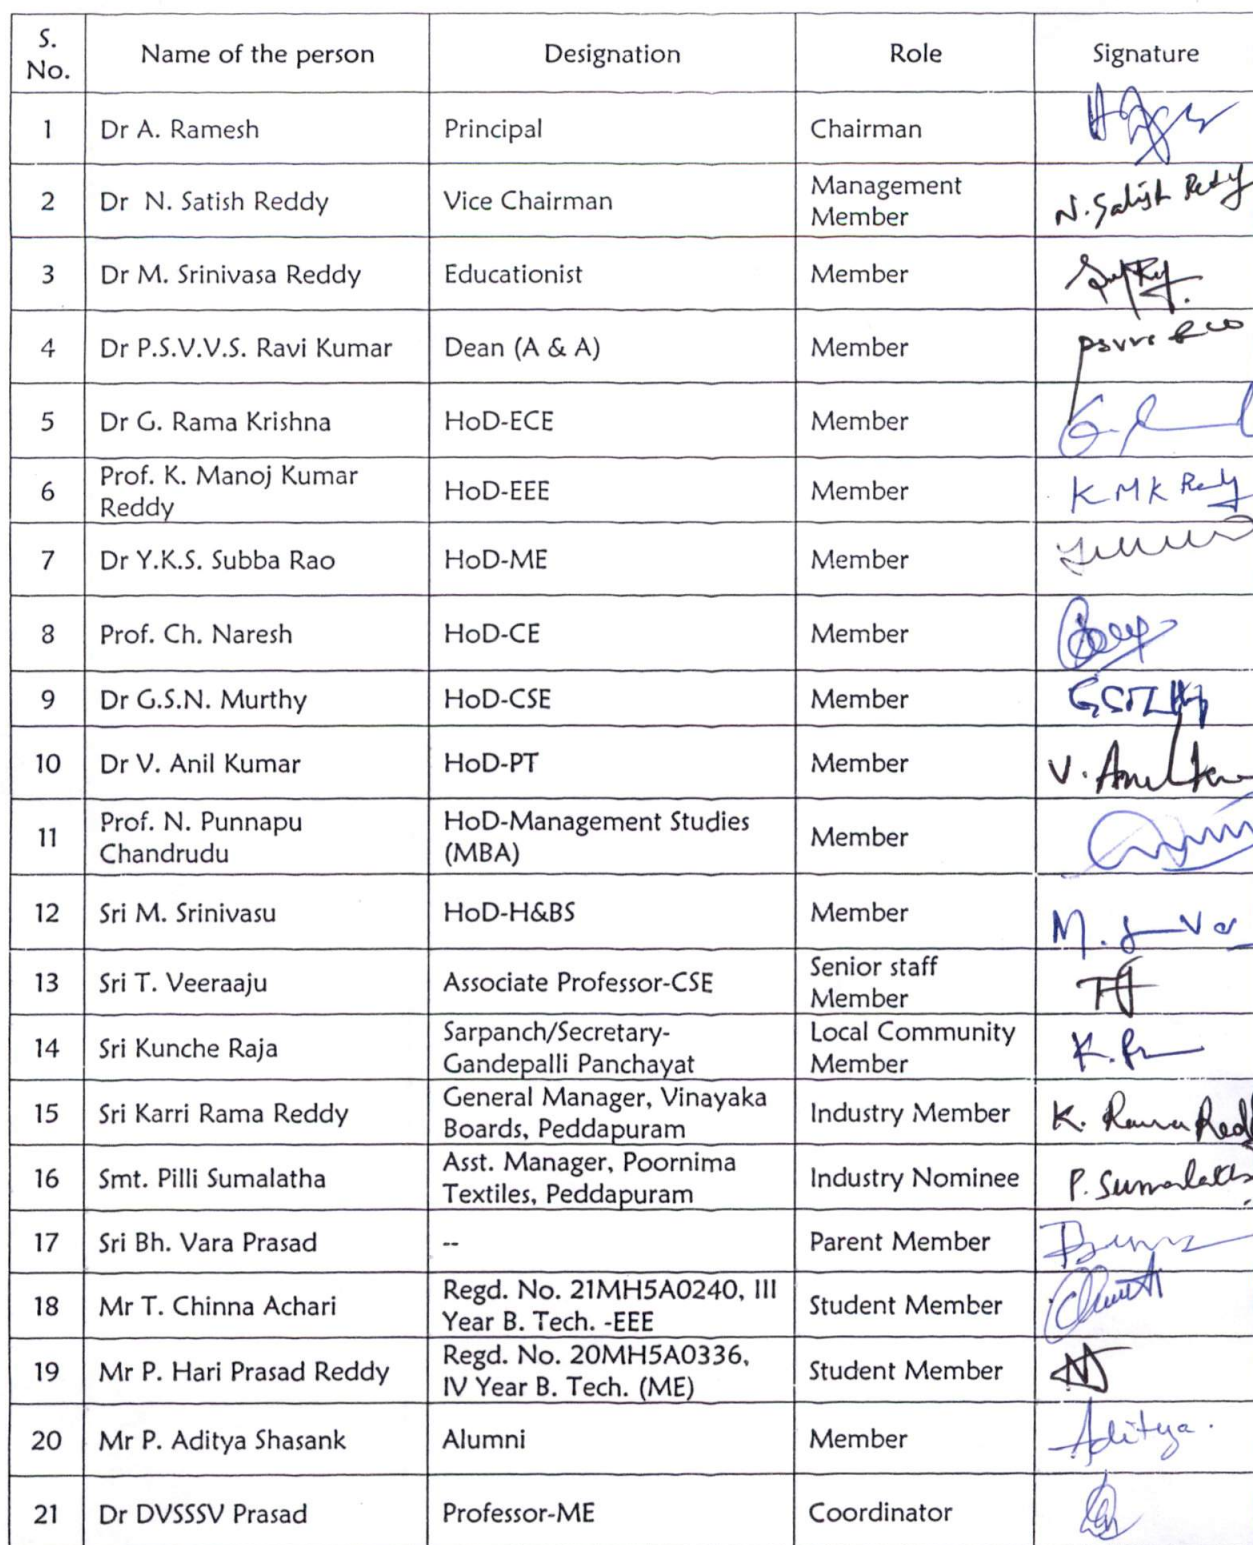 S. No. Name of the person Designation Role Signature
1 Dr A. Ramesh Principal Chairman
2 Dr N. Satish Reddy Vice Chairman Management Member N. Satish Reddy
3 Dr M. Srinivasa Reddy Educationist Member
4 Dr P.S.V.V.S. Ravi Kumar Dean (A & A) Member
5 Dr G. Rama Krishna HoD-ECE Member
6 Prof. K. Manoj Kumar Reddy HoD-EEE Member K M K Reddy
7 Dr Y.K.S. Subba Rao HoD-ME Member
8 Prof. Ch. Naresh HoD-CE Member
9 Dr G.S.N. Murthy HoD-CSE Member
10 Dr V. Anil Kumar HoD-PT Member
11 Prof. N. Punnapu Chandrudu HoD-Management Studies (MBA) Member
12 Sri M. Srinivasu HoD-H&BS Member
13 Sri T. Veeraaju Associate Professor-CSE Senior staff Member
14 Sri Kunche Raja Sarpanch/Secretary- Gandepalli Panchayat Local Community Member
15 Sri Karri Rama Reddy General Manager, Vinayaka Boards, Peddapuram Industry Member K. Rama Redd
16 Smt. Pilli Sumalatha Asst. Manager, Poornima Textiles, Peddapuram Industry Nominee P. Sumalatha
17 Sri Bh. Vara Prasad -- Parent Member
18 Mr T. Chinna Achari Regd. No. 21MH5A0240, III Year B. Tech. -EEE Student Member
19 Mr P. Hari Prasad Reddy Regd. No. 20MH5A0336, IV Year B. Tech. (ME) Student Member
20 Mr P. Aditya Shasank Alumni Member Aditya.
21 Dr DVSSSV Prasad Professor-ME Coordinator